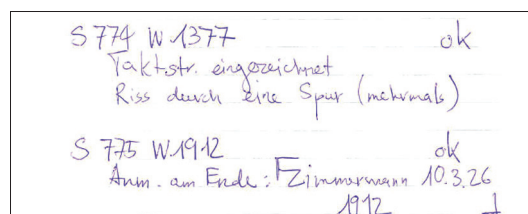 S 774 W 1377 ok
Taktstr. eingezeichnet
Riss durch eine Spur (mehrmals)
S 775 W 1912 ok
Anm. am Ende: FZimmermann 10.3.26
1912